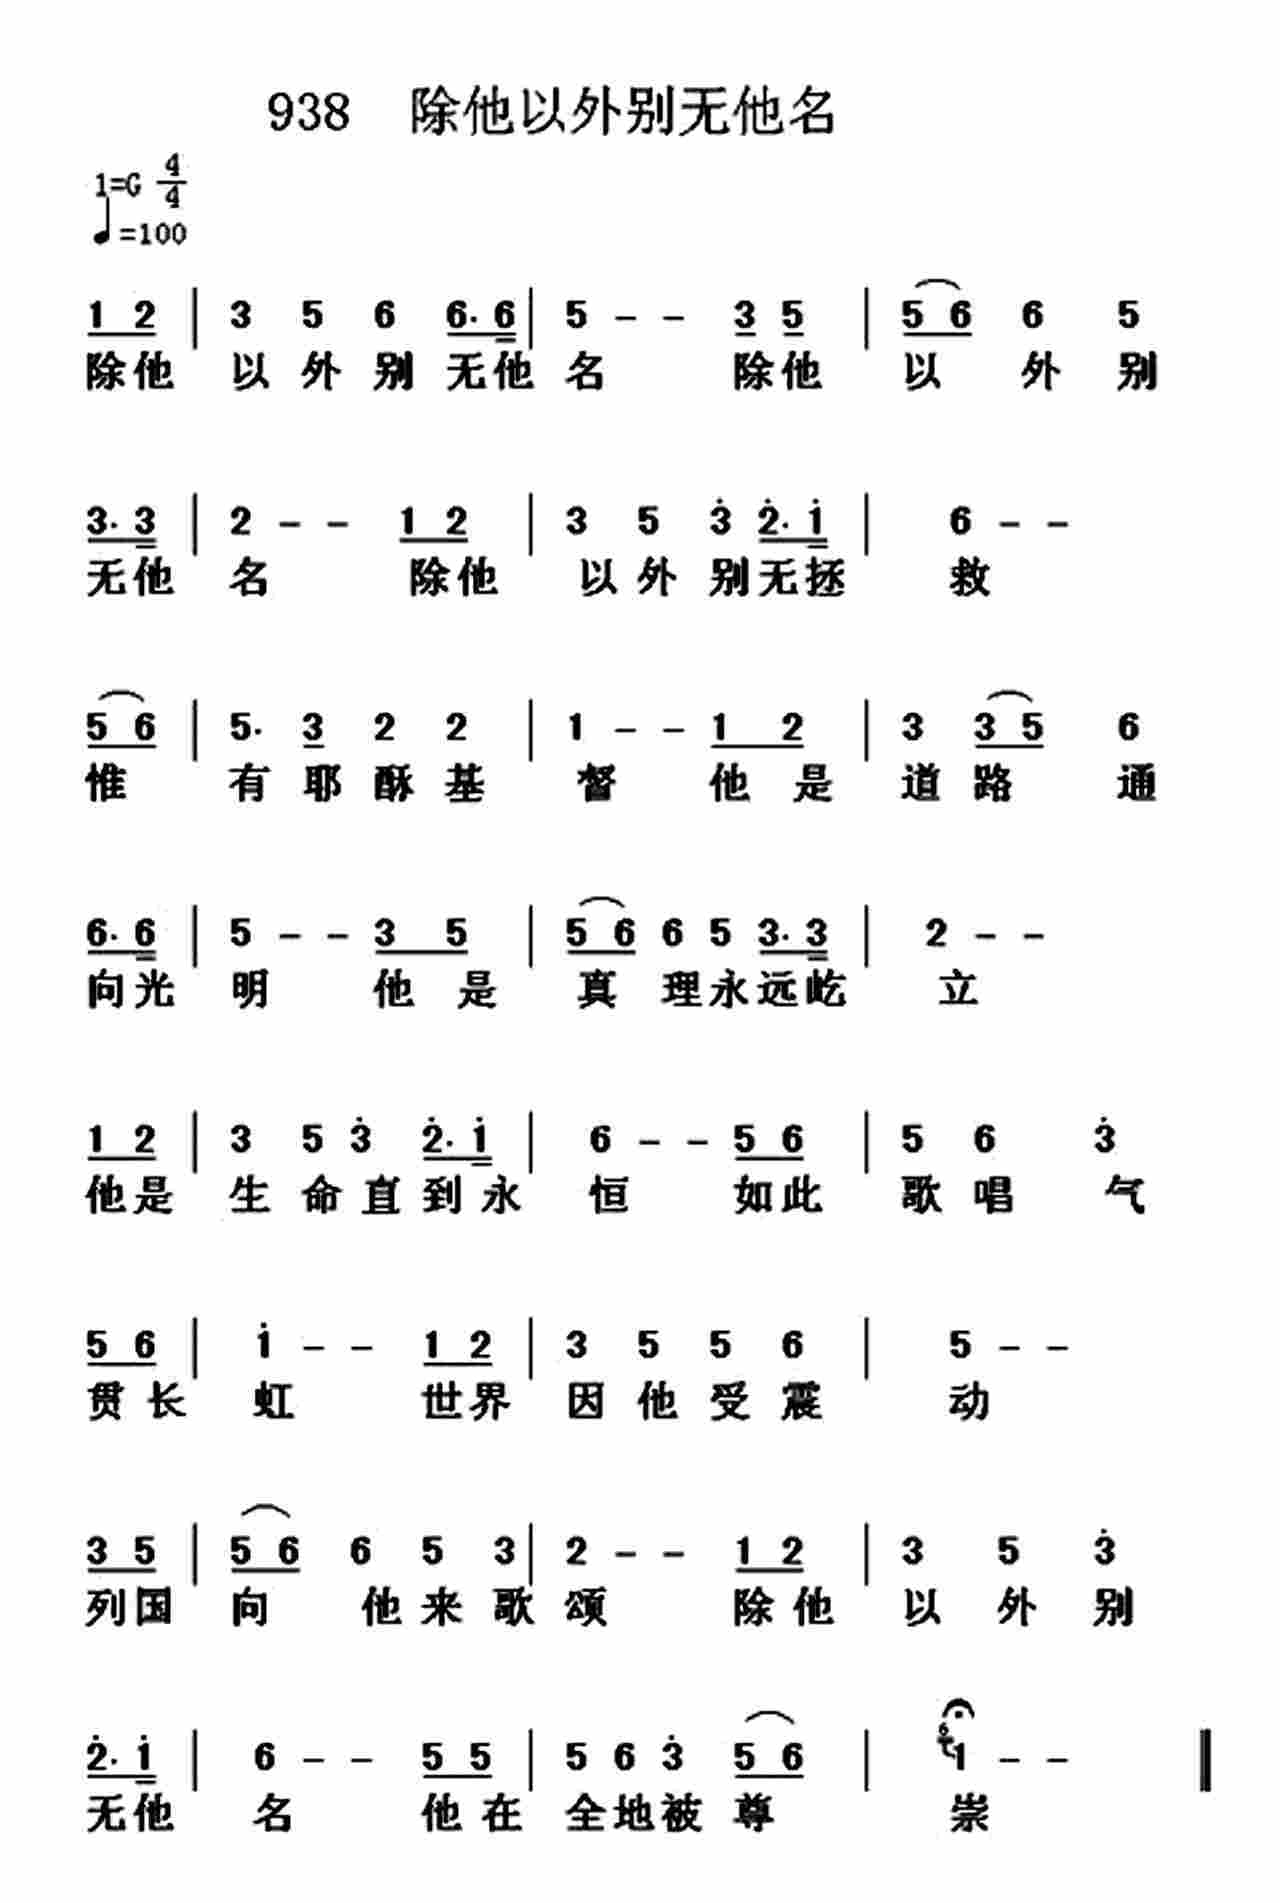 938 除他以外别无他名
1=G 4/4
♩=100
1 2 | 3 5 6 6. 6 | 5 - - 3 5 | 5 6 6 5
除他 以外别无他名 除他 以外别
3. 3 | 2 - - 1 2 | 3 5 3̇ 2̇. 1̇ | 6 - -
无他 名 除他 以外别无拯 救
5 6 | 5. 3 2 2 | 1 - - 1 2 | 3 3 5 6
惟 有耶酥基 督 他是 道路通
6. 6 | 5 - - 3 5 | 5 6 6 5 3. 3 | 2 - -
向光 明 他是 真理永远屹 立
1 2 | 3 5 3̇ 2̇. 1̇ | 6 - - 5 6 | 5 6 3̇
他是 生命直到永 恒 如此 歌唱气
5 6 | 1̇ - - 1 2 | 3 5 5 6 | 5 - -
贯长 虹 世界 因他受震 动
3 5 | 5 6 6 5 3 | 2 - - 1 2 | 3 5 3̇
列国 向他来歌颂 除他 以外别
2̇. 1̇ | 6 - - 5 5 | 5 6 3̇ 5 6 | 6 1 - -
无他 名 他在 全地被尊 崇